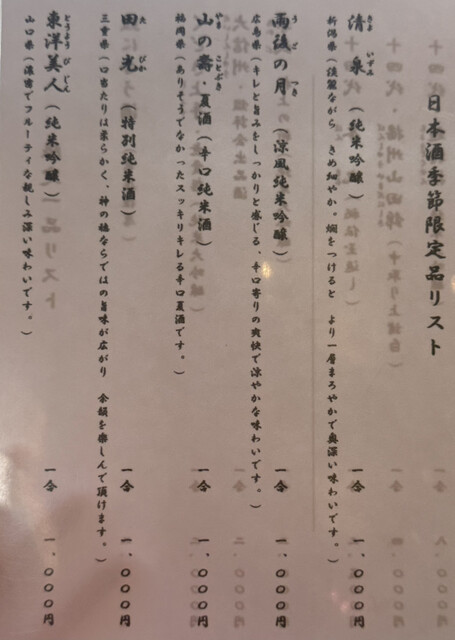 日本酒季節限定品リスト
清泉(純米吟醸) 一合 一、〇〇〇円
きよ いずみ
新潟県(淡麗ながら きめ細やか。燗をつけると より一層まろやかで奥深い味わいです。)
雨後の月(涼風純米吟醸) 一合 一、〇〇〇円
うご つき
広島県(キレと旨みをしっかりと感じる、辛口寄りの爽快で涼やかな味わいです。)
山の壽・夏酒(辛口純米酒) 一合 一、〇〇〇円
やま ことぶき
福岡県(ありそうでなかったスッキリキレる辛口夏酒です。)
田光(特別純米酒) 一合 一、〇〇〇円
た びか
三重県(口当たりは柔らかく、神の穂ならではの旨味が広がり 余韻を楽しんで頂けます。)
東洋美人(純米吟醸) 一合 一、〇〇〇円
とうようびじん
山口県(濃密でフルーティな親しみ深い味わいです。)